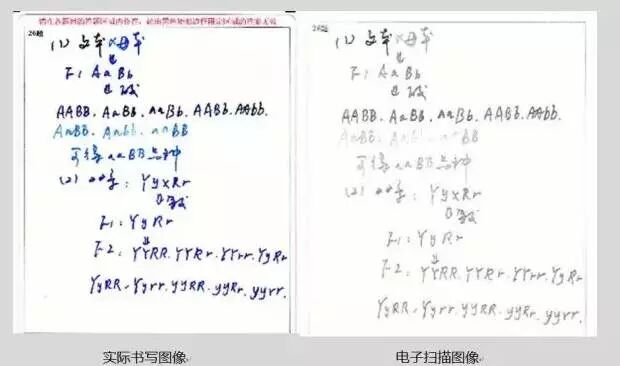 请在各题目的答题区域内作答,超出黑色矩形边框限定区域的答案无效
26题
(1) 父本×母本
F1 AaBb
AABB. AaBB. aaBb. AABb. AAbb.
AaBB. Aabb. aaBB
可得aaBB品种
(2) : YyxRr
F1: YyRr
F2: YYRR. YYRr. YYrr. YyRr
YyRR. Yyrr. yyRR. yyRr. yyrr.
实际书写图像
26题
(1) 父本×母本
F1 AaBb
AABB. AaBB. aaBb. AABb. AAbb.
AaBB. Aabb. aaBB
可得aaBB品种
(2) : YyxRr
F1: YyRr
F2: YYRR. YYRr. YYrr. YyRr
YyRR. Yyrr. yyRR. yyRr. yyrr.
电子扫描图像